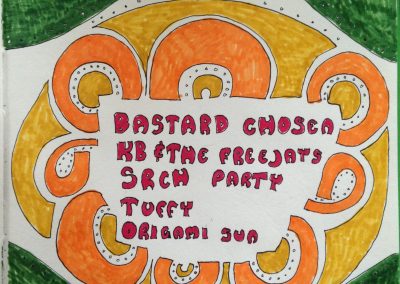 BASTARD CHOSEN
KB & THE FREEJAYS
SRCH PARTY
TUFFY
ORIGAMI SUN